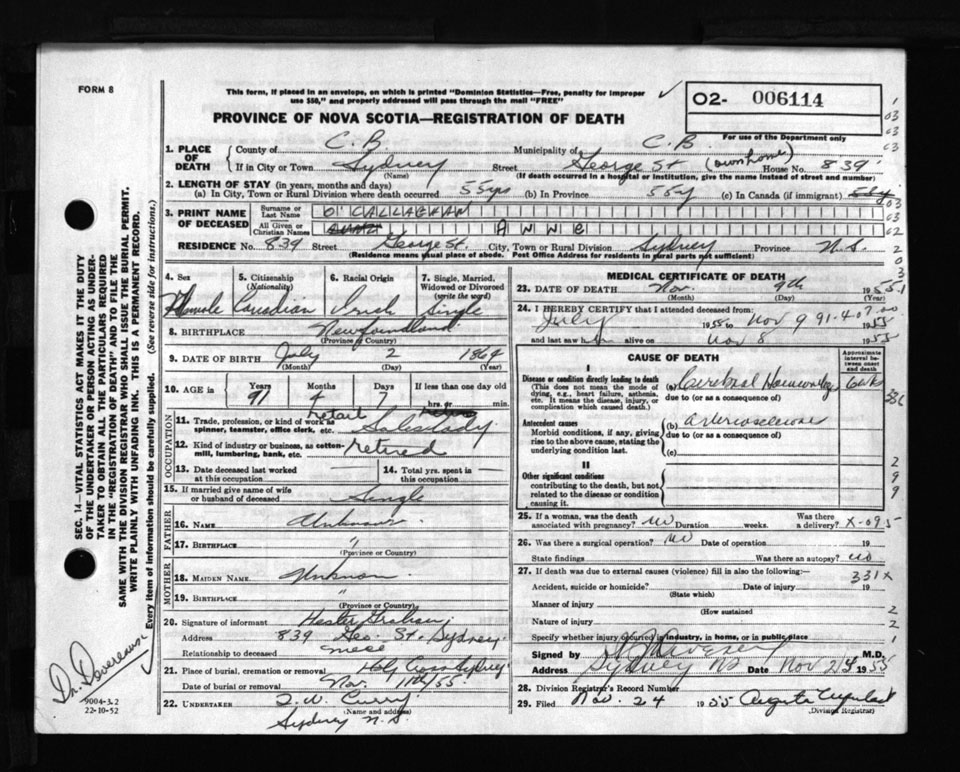 FORM 8
This form, if placed in an envelope, on which is printed "Dominion Statistics—Free, penalty for improper
use $50," and properly addressed will pass through the mail "FREE"
O2- 006114
PROVINCE OF NOVA SCOTIA—REGISTRATION OF DEATH
For use of the Department only
1. PLACE OF DEATH
County of C.B. Municipality of C.B.
If in City or Town Sydney Street George St (own home) House No. 839
(Name) (If death occurred in a hospital or institution, give the name instead of street and number)
2. LENGTH OF STAY (in years, months and days)
(a) In City, Town or Rural Division where death occurred 55 yrs (b) In Province 55 y (c) In Canada (if immigrant)
3. PRINT NAME OF DECEASED
Surname or Last Name O'CALLAGHAN
All Given or Christian Names ANNE
RESIDENCE No. 839 Street George St. City, Town or Rural Division Sydney Province N.S.
(Residence means usual place of abode. Post Office Address for residents in rural parts not sufficient)
4. Sex Female
5. Citizenship (Nationality) Canadian
6. Racial Origin Irish
7. Single, Married, Widowed or Divorced (write the word) Single
8. BIRTHPLACE Newfoundland
(Province or Country)
9. DATE OF BIRTH July 2 1864
(Month) (Day) (Year)
10. AGE in Years 91 Months 4 Days 7 If less than one day old
hrs. or min.
OCCUPATION
11. Trade, profession, or kind of work as spinner, teamster, office clerk, etc. retail Saleslady
12. Kind of industry or business, as cotton-mill, lumbering, bank, etc. retired
13. Date deceased last worked at this occupation
14. Total yrs. spent in this occupation
15. If married give name of wife or husband of deceased Single
FATHER
16. NAME Unknown
17. BIRTHPLACE "
(Province or Country)
MOTHER
18. MAIDEN NAME Unknown
19. BIRTHPLACE "
(Province or Country)
20. Signature of informant Hester Graham
Address 839 Geo. St. Sydney
Relationship to deceased niece
21. Place of burial, cremation or removal Holy Cross Sydney
Date of burial or removal Nov. 11th/55
22. UNDERTAKER T. W. Curry
(Name and address)
Sydney N.S.
MEDICAL CERTIFICATE OF DEATH
23. DATE OF DEATH Nov. 9th 1955
(Month) (Day) (Year)
24. I HEREBY CERTIFY that I attended deceased from:
July 1955 to Nov 9 1955
and last saw h alive on Nov 8 1955
CAUSE OF DEATH
Approximate interval between onset and death
I
Disease or condition directly leading to death
(This does not mean the mode of dying, e.g., heart failure, asthenia, etc. It means the disease, injury, or complication which caused death.)
(a) Cerebral Hemorrhage
due to (or as a consequence of)
Antecedent causes
Morbid conditions, if any, giving rise to the above cause, stating the underlying condition last.
(b) arteriosclerosis
due to (or as a consequence of)
(c)
II
Other significant conditions
contributing to the death, but not related to the disease or condition causing it.
25. If a woman, was the death associated with pregnancy? no Duration weeks. Was there a delivery? X-095
26. Was there a surgical operation? no Date of operation 19
State findings Was there an autopsy? no
27. If death was due to external causes (violence) fill in also the following:—
331X
Accident, suicide or homicide? Date of injury 19
(State which)
Manner of injury
(How sustained
Nature of injury
Specify whether injury occurred in industry, in home, or in public place
Signed by M.D.
Address Sydney NS Date Nov 24 1955
28. Division Registrar's Record Number
29. Filed Nov. 24 1955
(Division Registrar)
SEC. 14—VITAL STATISTICS ACT MAKES IT THE DUTY
OF THE UNDERTAKER OR PERSON ACTING AS UNDER-
TAKER TO OBTAIN ALL THE PARTICULARS REQUIRED
IN THE "REGISTRATION OF DEATH" AND TO FILE THE
SAME WITH THE DIVISION REGISTRAR WHO SHALL ISSUE THE BURIAL PERMIT.
WRITE PLAINLY WITH UNFADING INK. THIS IS A PERMANENT RECORD.
Every item of information should be carefully supplied. (See reverse side for instructions.)
Dr. Devereaux
9004-3.2
22-10-52